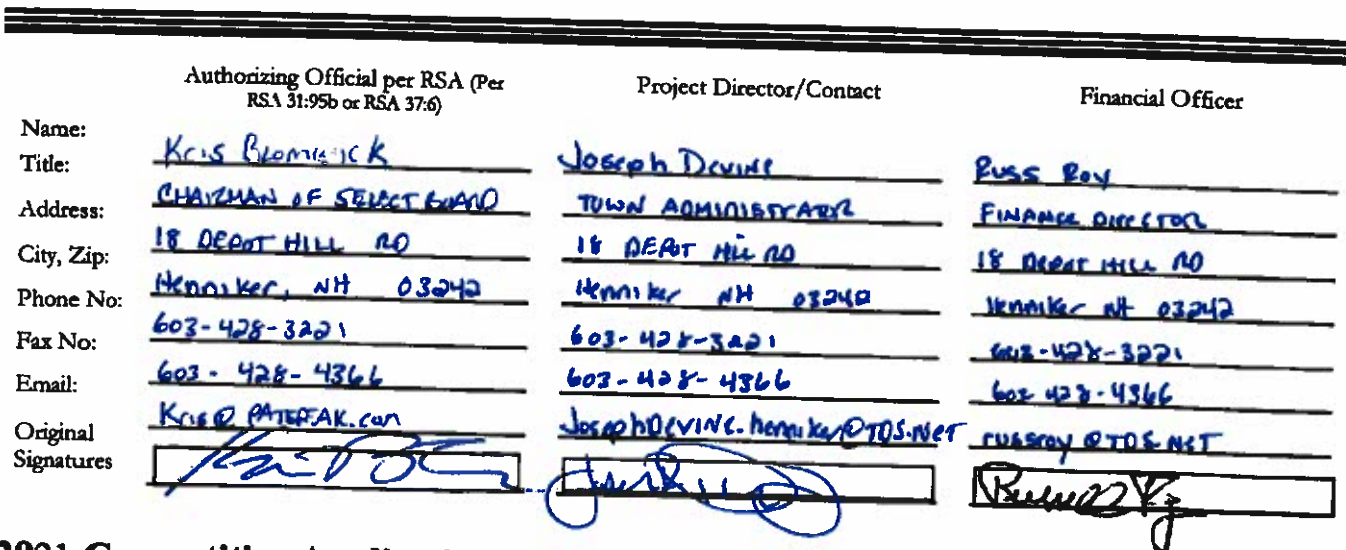 Authorizing Official per RSA (Per RSA 31:95b or RSA 37:6)
Project Director/Contact
Financial Officer
Name: Kris Joseph Devine Russ Roy
Title: CHAIRMAN OF SELECT BOARD TOWN ADMINISTRATOR FINANCE DIRECTOR
Address: 18 DEPOT HILL RD 18 DEPOT HILL RD 18 DEPOT HILL RD
City, Zip: Henniker, NH 03242 Henniker NH 03242 Henniker NH 03242
Phone No: 603-428-3221 603-428-3221 603-428-3221
Fax No: 603-428-4366 603-428-4366 603-428-4366
Email: JosephDEVINE.henniker@TDS.NET russroy@TDS.NET
Original Signatures